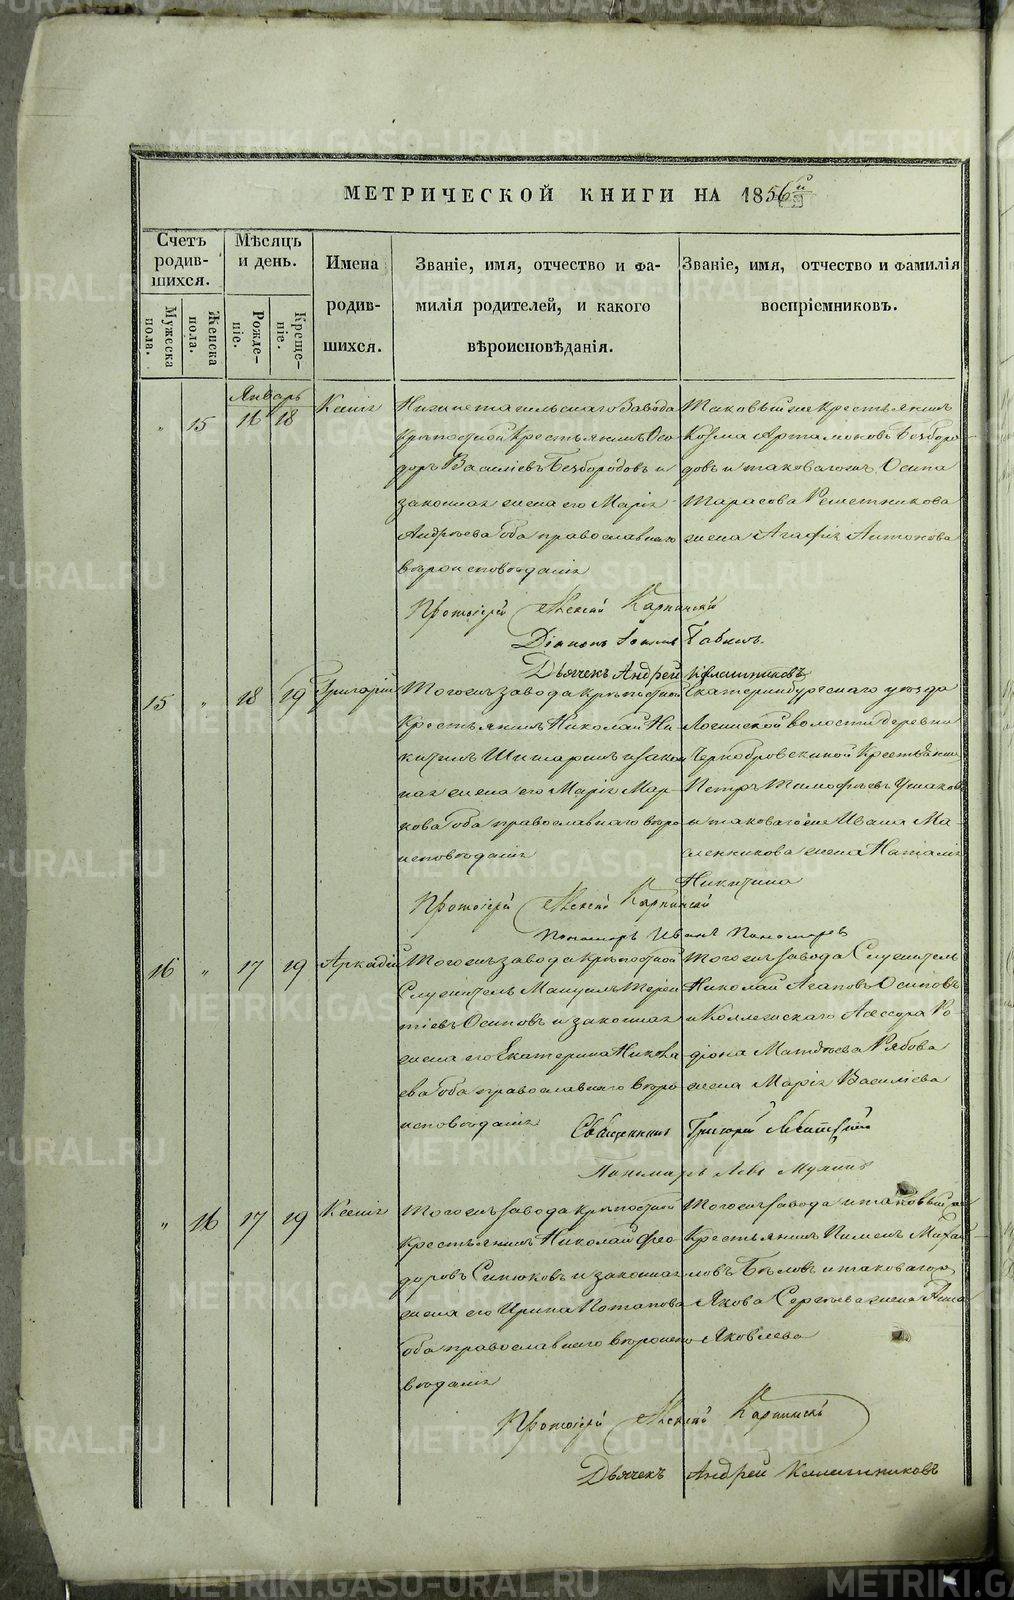 МЕТРИЧЕСКОЙ КНИГИ НА 1856й
Счетъ родив-шихся.
Мужеска пола.
Женска пола.
Мѣсяцъ и день.
Рожде-ніе.
Креще-ніе.
Имена родив-шихся.
Званіе, имя, отчество и фа-
милія родителей, и какого
вѣроисповѣданія.
Званіе, имя, отчество и фамилія
воспріемниковъ.
Январь
" 15 16 18 Ксенія
Нижнетагильскаго Завода
крѣпостной Крестьянинъ Ѳео
доръ Васильевъ Безбородовъ и
законная жена его Марія
Андреева оба православнаго
вѣроисповѣданія
Таковый же крестьянинъ
Козма Артамоновъ Безборо-
довъ и таковагожъ Осипа
Тарасова Решетникова
жена Агафія Антонова
Протоіерей Алексій Карпинскій
Діаконъ Іоаннъ Бабинъ.
Дьячекъ Андрей Калашниковъ
15 " 18 19 Григорій
Тогожъ завода крѣпостной
Крестьянинъ Николай Ни
китинъ и закон
ная жена его Марія Мар-
кова оба православнаго вѣро
исповѣданія
Екатеринбургскаго уѣзда
Логиновской волости деревни
Чернобровкиной Крестьянинъ
Петръ Тимофѣевъ Ушаковъ
и таковаго же Ивана Ма-
сленникова жена Наталія
Никитина
Протоіерей Алексій Карпинскій
Пономарь Иванъ Пономаревъ
16 " 17 19 Аркадій
Тогожъ завода крѣпостной
Служитель Мануилъ Терен
тіевъ Осиповъ и законная
жена его Екатерина Никола
ева оба православнаго вѣро
исповѣданія
Тогожъ завода Служитель
Николай Агаповъ Осиповъ
и Коллежскаго Асессора Ро-
діона Матвѣева Рябова
жена Марія Васильева
Священникъ Григорій Левитскій
Пономарь Левъ
" 16 17 19 Ксенія
Тогожъ завода крѣпостной
Крестьянинъ Николай Ѳео
доровъ Синюковъ и законная
жена его Ирина Потапова
оба православнаго вѣроиспо
вѣданія
Тогожъ завода и таковый же
Крестьянинъ Пименъ Михай
ловъ Бѣловъ и таковагожъ
Якова Сергѣева жена Анна
Яковлева
Протоіерей Алексій Карпинскій
Дьячекъ Андрей Калашниковъ
METRIKI.GASO-URAL.RU